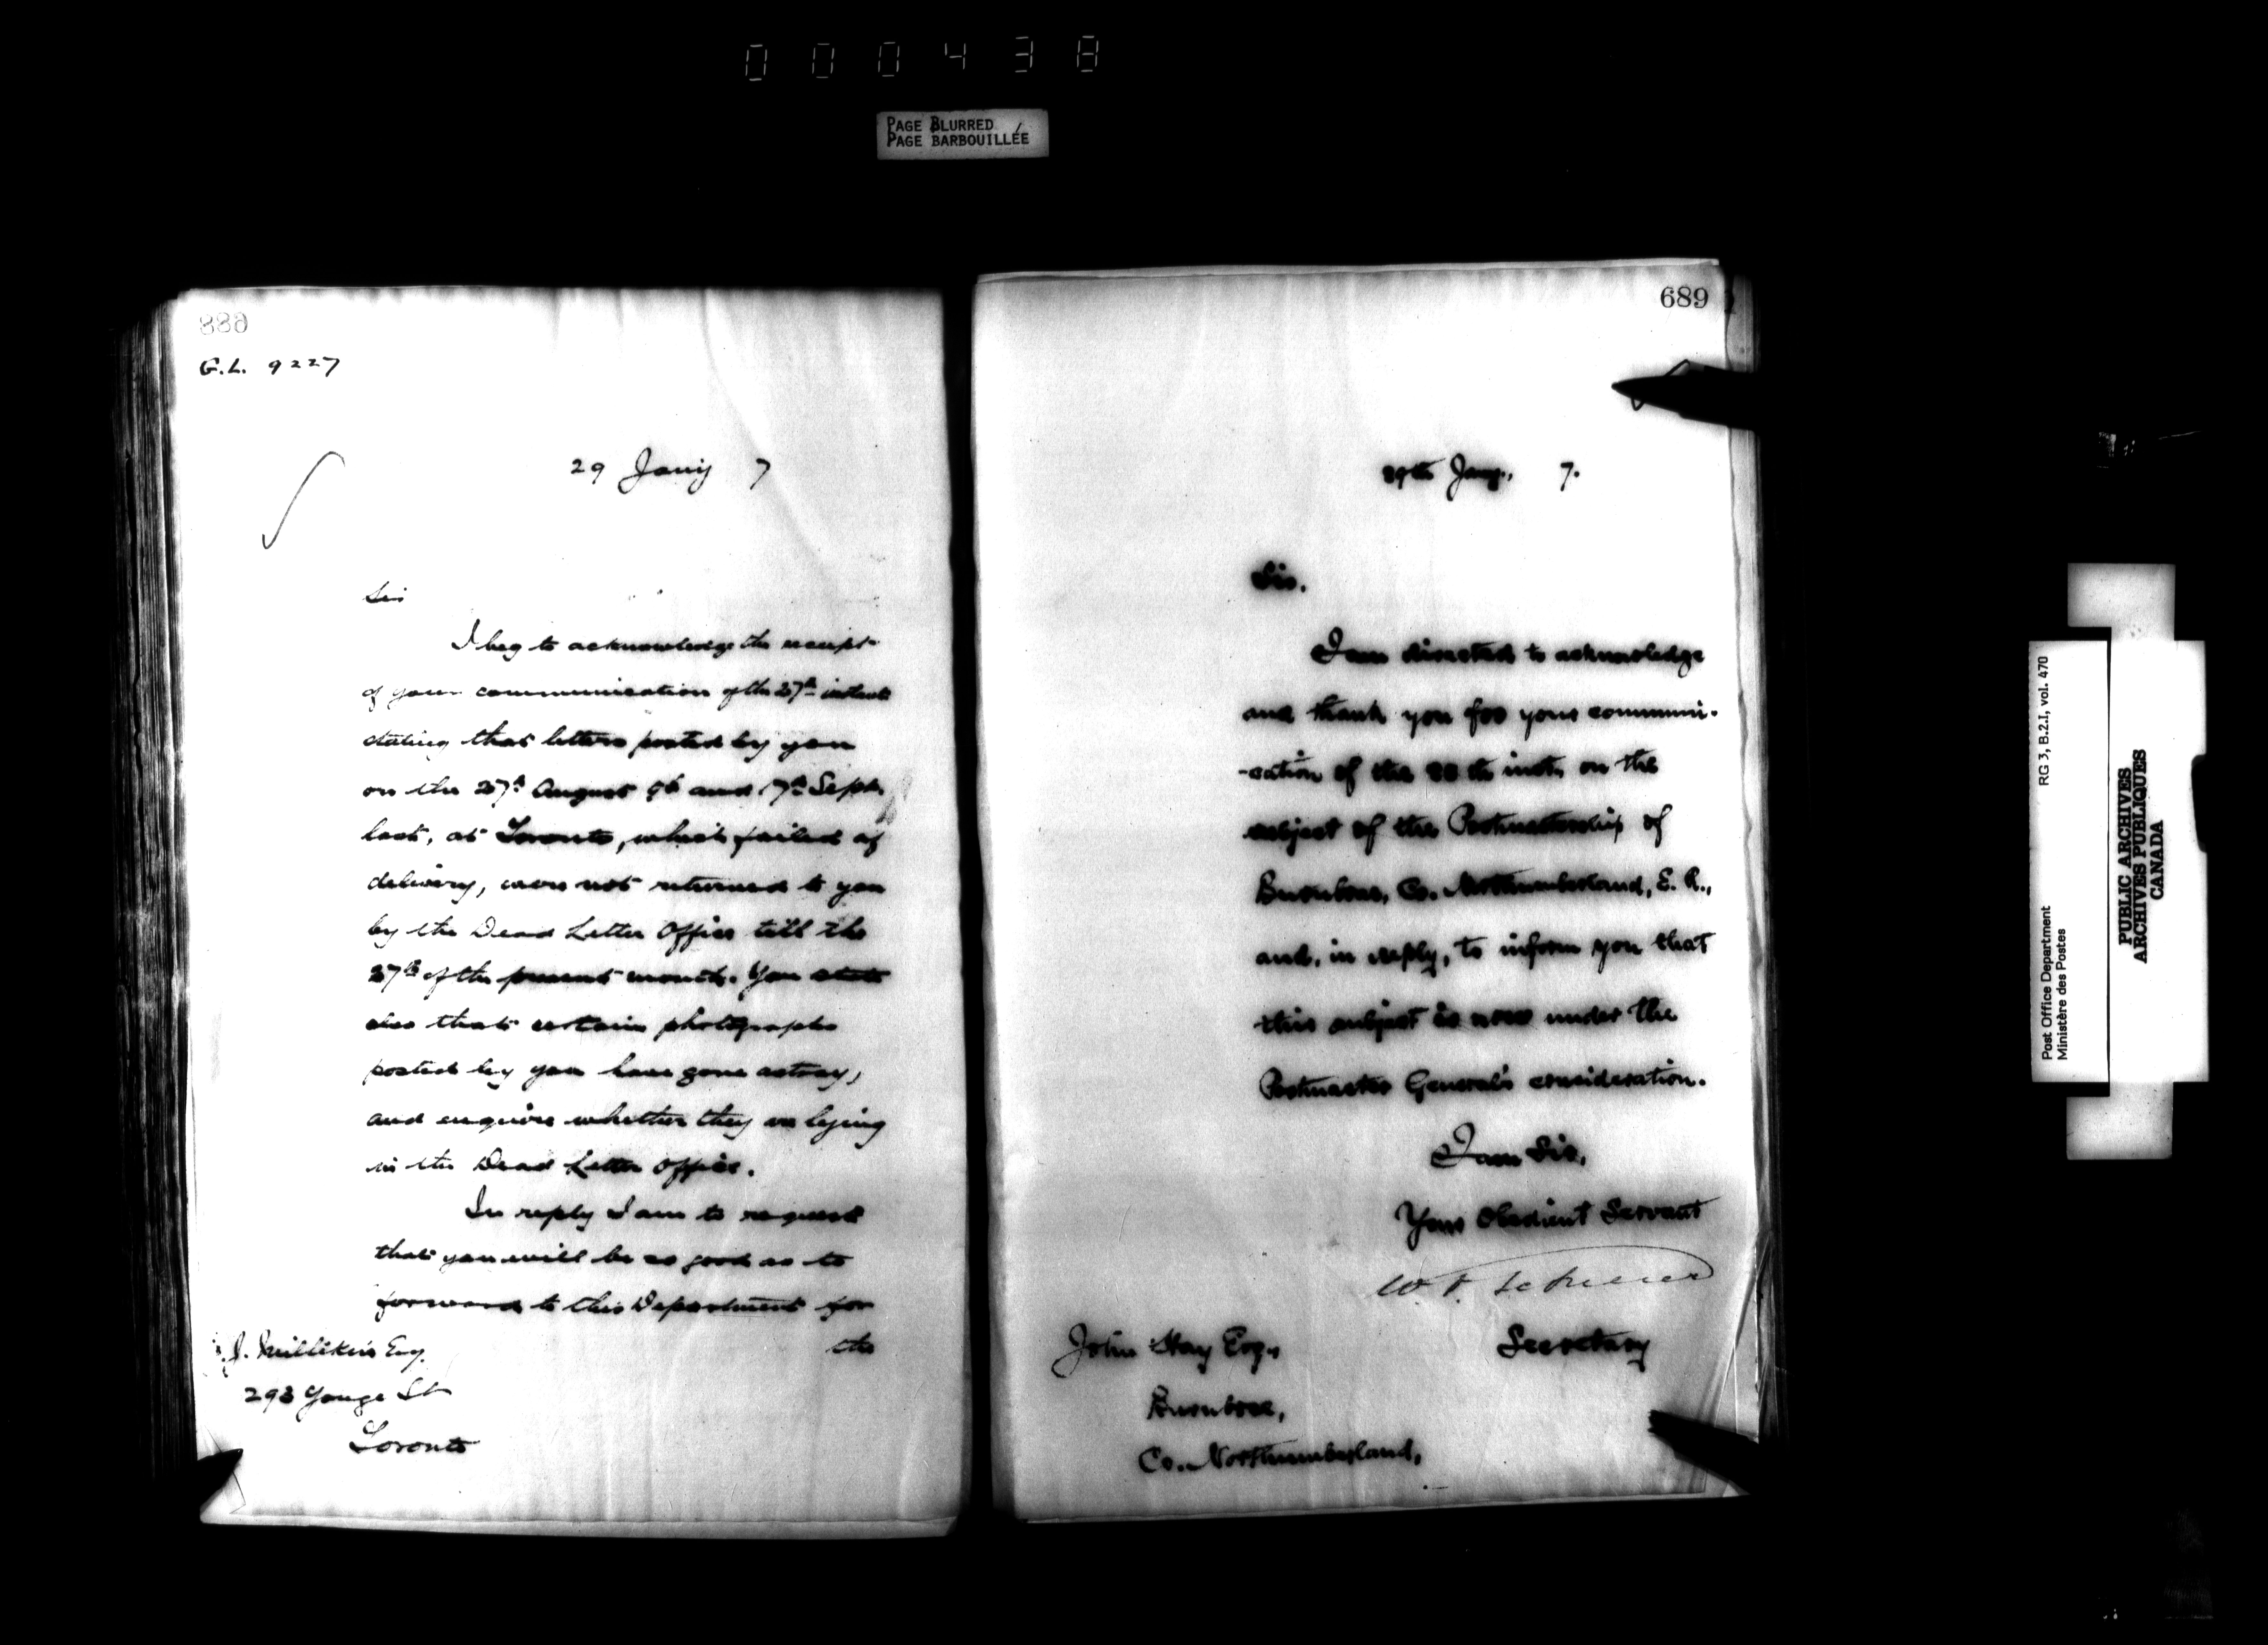 000438
PAGE BLURRED
PAGE BARBOUILLÉE
688
G.L. 9227
29 Jany 7
Sir
I beg to acknowledge the receipt
of your communication of the 27th instant
stating that letters posted by you
on the 27th August 9th and 17th Sept.
last, at Toronto, which failed of
delivery, were not returned to you
by the Dead Letter Office till the
27th of the present month. You state
also that certain photographs
posted by you have gone astray,
and enquire whether they are lying
in the Dead Letter Office.
In reply I am to request
that you will be so good as to
forward to this Department for
the
J. Millikin Esq.
293 Yonge St
Toronto
689
29th Jany., 7.
Sir.
I am directed to acknowledge
and thank you for your communi-
-cation of the 28th inst. on the
subject of the Postmastership of
Burnbrae, Co. Northumberland, E. R.,
and, in reply, to inform you that
this subject is now under the
Postmaster General's consideration.
I am Sir,
Your Obedient Servant
W. D.
Secretary
John Hay Esq.,
Burnbrae,
Co. Northumberland,
Post Office Department
Ministère des Postes
RG 3, B.2.I, vol. 470
PUBLIC ARCHIVES
ARCHIVES PUBLIQUES
CANADA